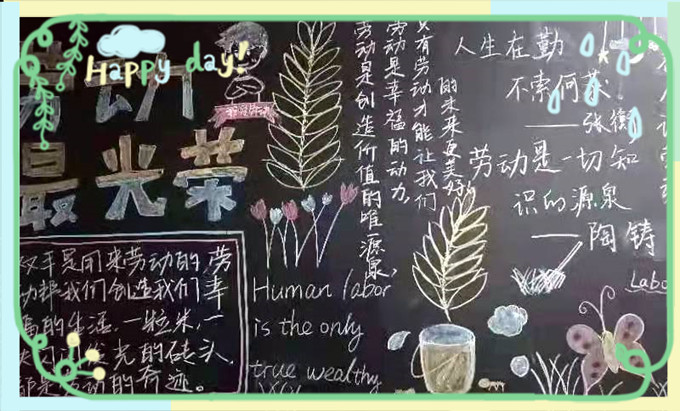 Happy day!
劳动
最光荣
双手是用来劳动的，劳
动帮我们创造我们幸
福的生活，一粒米，一
光的砖头，
都是劳动的奇迹。
Human labor
is the only
true wealthy
只有劳动才能让我们
的未来更美好
劳动是幸福的动力，
劳动是创造价值的唯一源泉，
人生在勤
不索何获
——张衡
劳动是一切知
识的源泉
——陶铸
Labo